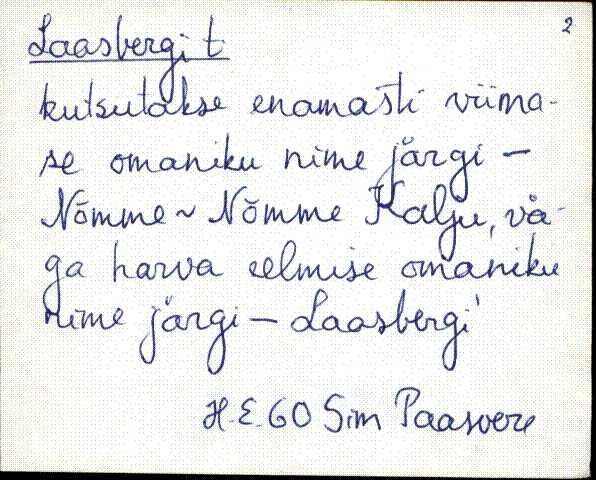 2
Laasbergi t
kutsutakse enamasti viima-
se omaniku nime järgi –
Nõmme ~ Nõmme Kalju, vä-
ga harva eelmise omaniku
nime järgi – Laasbergi
H.E. 60 Sim Paasvere